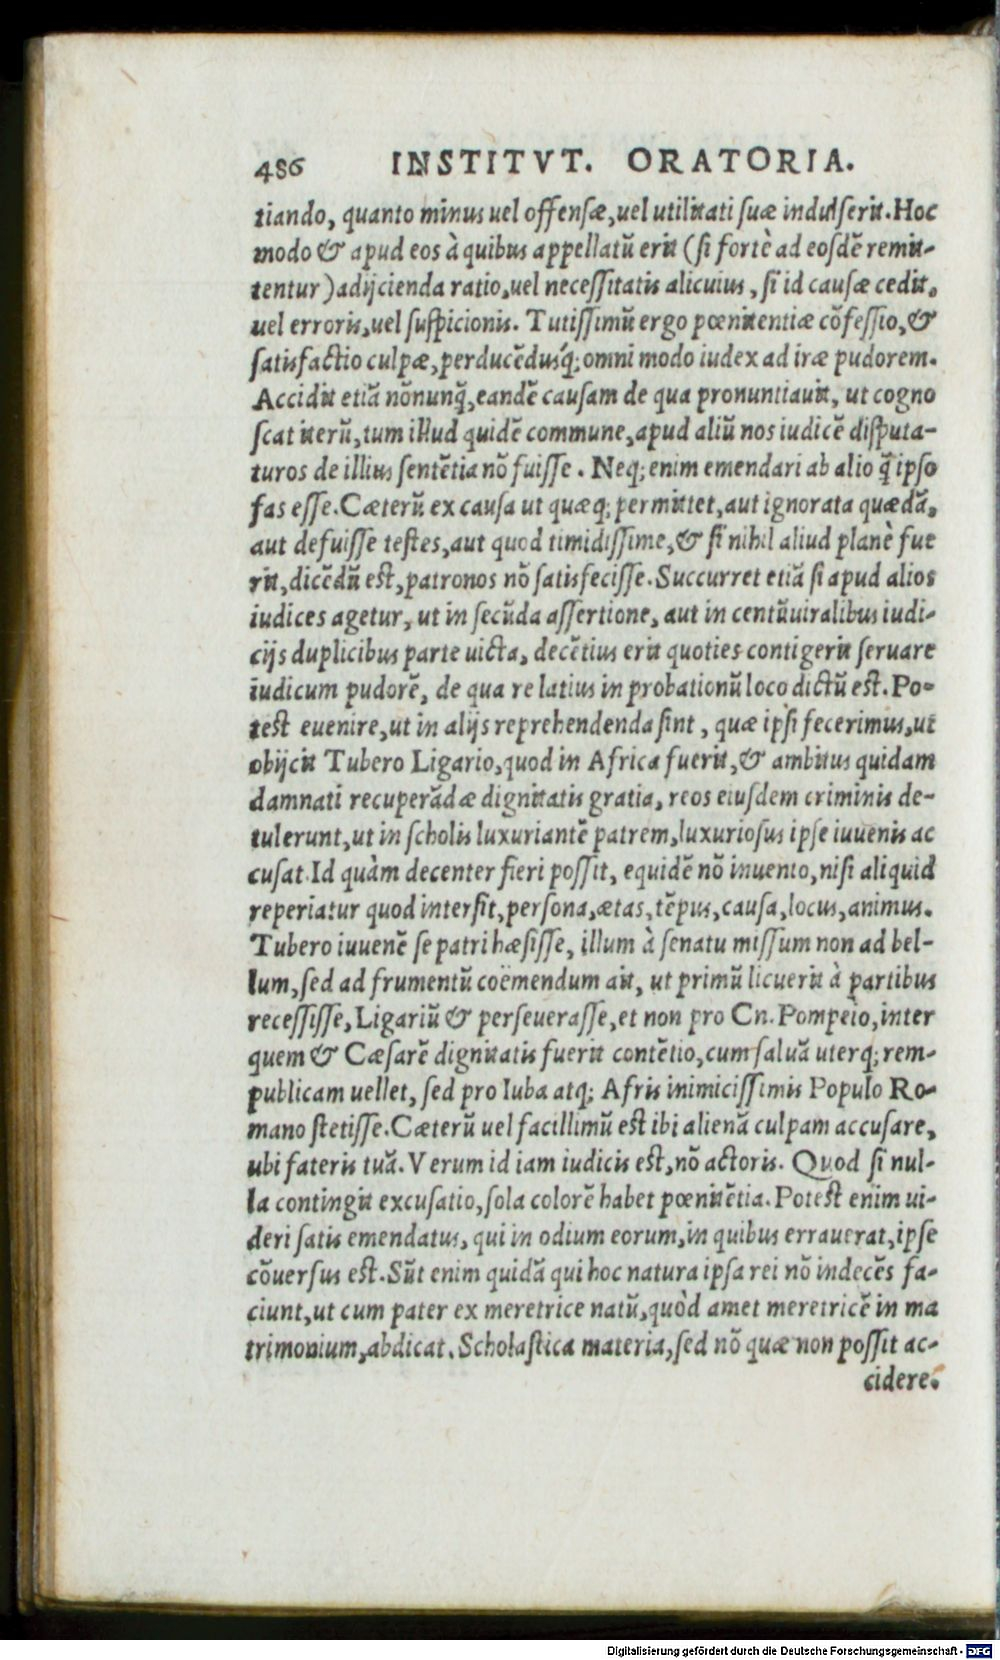 486 INSTITVT. ORATORIA.
tiando, quanto minus uel offensæ, uel utilitati suæ indulserit. Hoc
modo & apud eos à quibus appellatũ erit (si fortè ad eosdẽ remit-
tentur) adijcienda ratio, uel necessitatis alicuius, si id causæ cedit,
uel erroris, uel suspicionis. Tutissimũ ergo pœnitentiæ cõfessio, &
satisfactio culpæ, perducẽdusq́; omni modo iudex ad iræ pudorem.
Accidit etiã nõnunq̃, eandẽ causam de qua pronuntiauit, ut cogno
scat iterũ, tum illud quidẽ commune, apud aliũ nos iudicẽ disputa-
turos de illius sentẽtia nõ fuisse. Neq; enim emendari ab alio q̃ ipso
fas esse. Cæterũ ex causa ut quæq; permittet, aut ignorata quædã,
aut defuisse testes, aut quod timidissime, & si nihil aliud planè fue
rit, dicẽdũ est, patronos nõ satisfecisse. Succurret etiã si apud alios
iudices agetur, ut in secũda assertione, aut in centũuiralibus iudi-
cijs duplicibus parte uicta, decẽtius erit quoties contigerit seruare
iudicum pudorẽ, de qua re latius in probationũ loco dictũ est. Po-
test euenire, ut in alijs reprehendenda sint, quæ ipsi fecerimus, ut
obijcit Tubero Ligario, quod in Africa fuerit, & ambitus quidam
damnati recuperãdæ dignitatis gratia, reos eiusdem criminis de-
tulerunt, ut in scholis luxuriantẽ patrem, luxuriosus ipse iuuenis ac
cusat. Id quàm decenter fieri possit, equidẽ nõ inuenio, nisi aliquid
reperiatur quod intersit, persona, ætas, tẽpus, causa, locus, animus.
Tubero iuuenẽ se patri hæsisse, illum à senatu missum non ad bel-
lum, sed ad frumentũ coëmendum ait, ut primũ licuerit à partibus
recessisse, Ligariũ & perseuerasse, et non pro Cn. Pompeio, inter
quem & Cæsarẽ dignitatis fuerit contẽtio, cum saluã uterq; rem-
publicam uellet, sed pro Iuba atq; Afris inimicissimis Populo Ro-
mano stetisse. Cæterũ uel facillimũ est ibi alienã culpam accusare,
ubi fateris tuã. Verum id iam iudicis est, nõ actoris. Quod si nul-
la contingit excusatio, sola colorẽ habet pœnitẽtia. Potest enim ui-
deri satis emendatus, qui in odium eorum, in quibus errauerat, ipse
cõuersus est. Sũt enim quidã qui hoc natura ipsa rei nõ indecẽs fa-
ciunt, ut cum pater ex meretrice natũ, quòd amet meretricẽ in ma
trimonium, abdicat. Scholastica materia, sed nõ quæ non possit ac-
cidere.
Digitalisierung gefördert durch die Deutsche Forschungsgemeinschaft - DFG